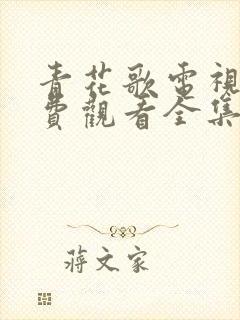 青花歌電視
費觀看全集
蔣文家